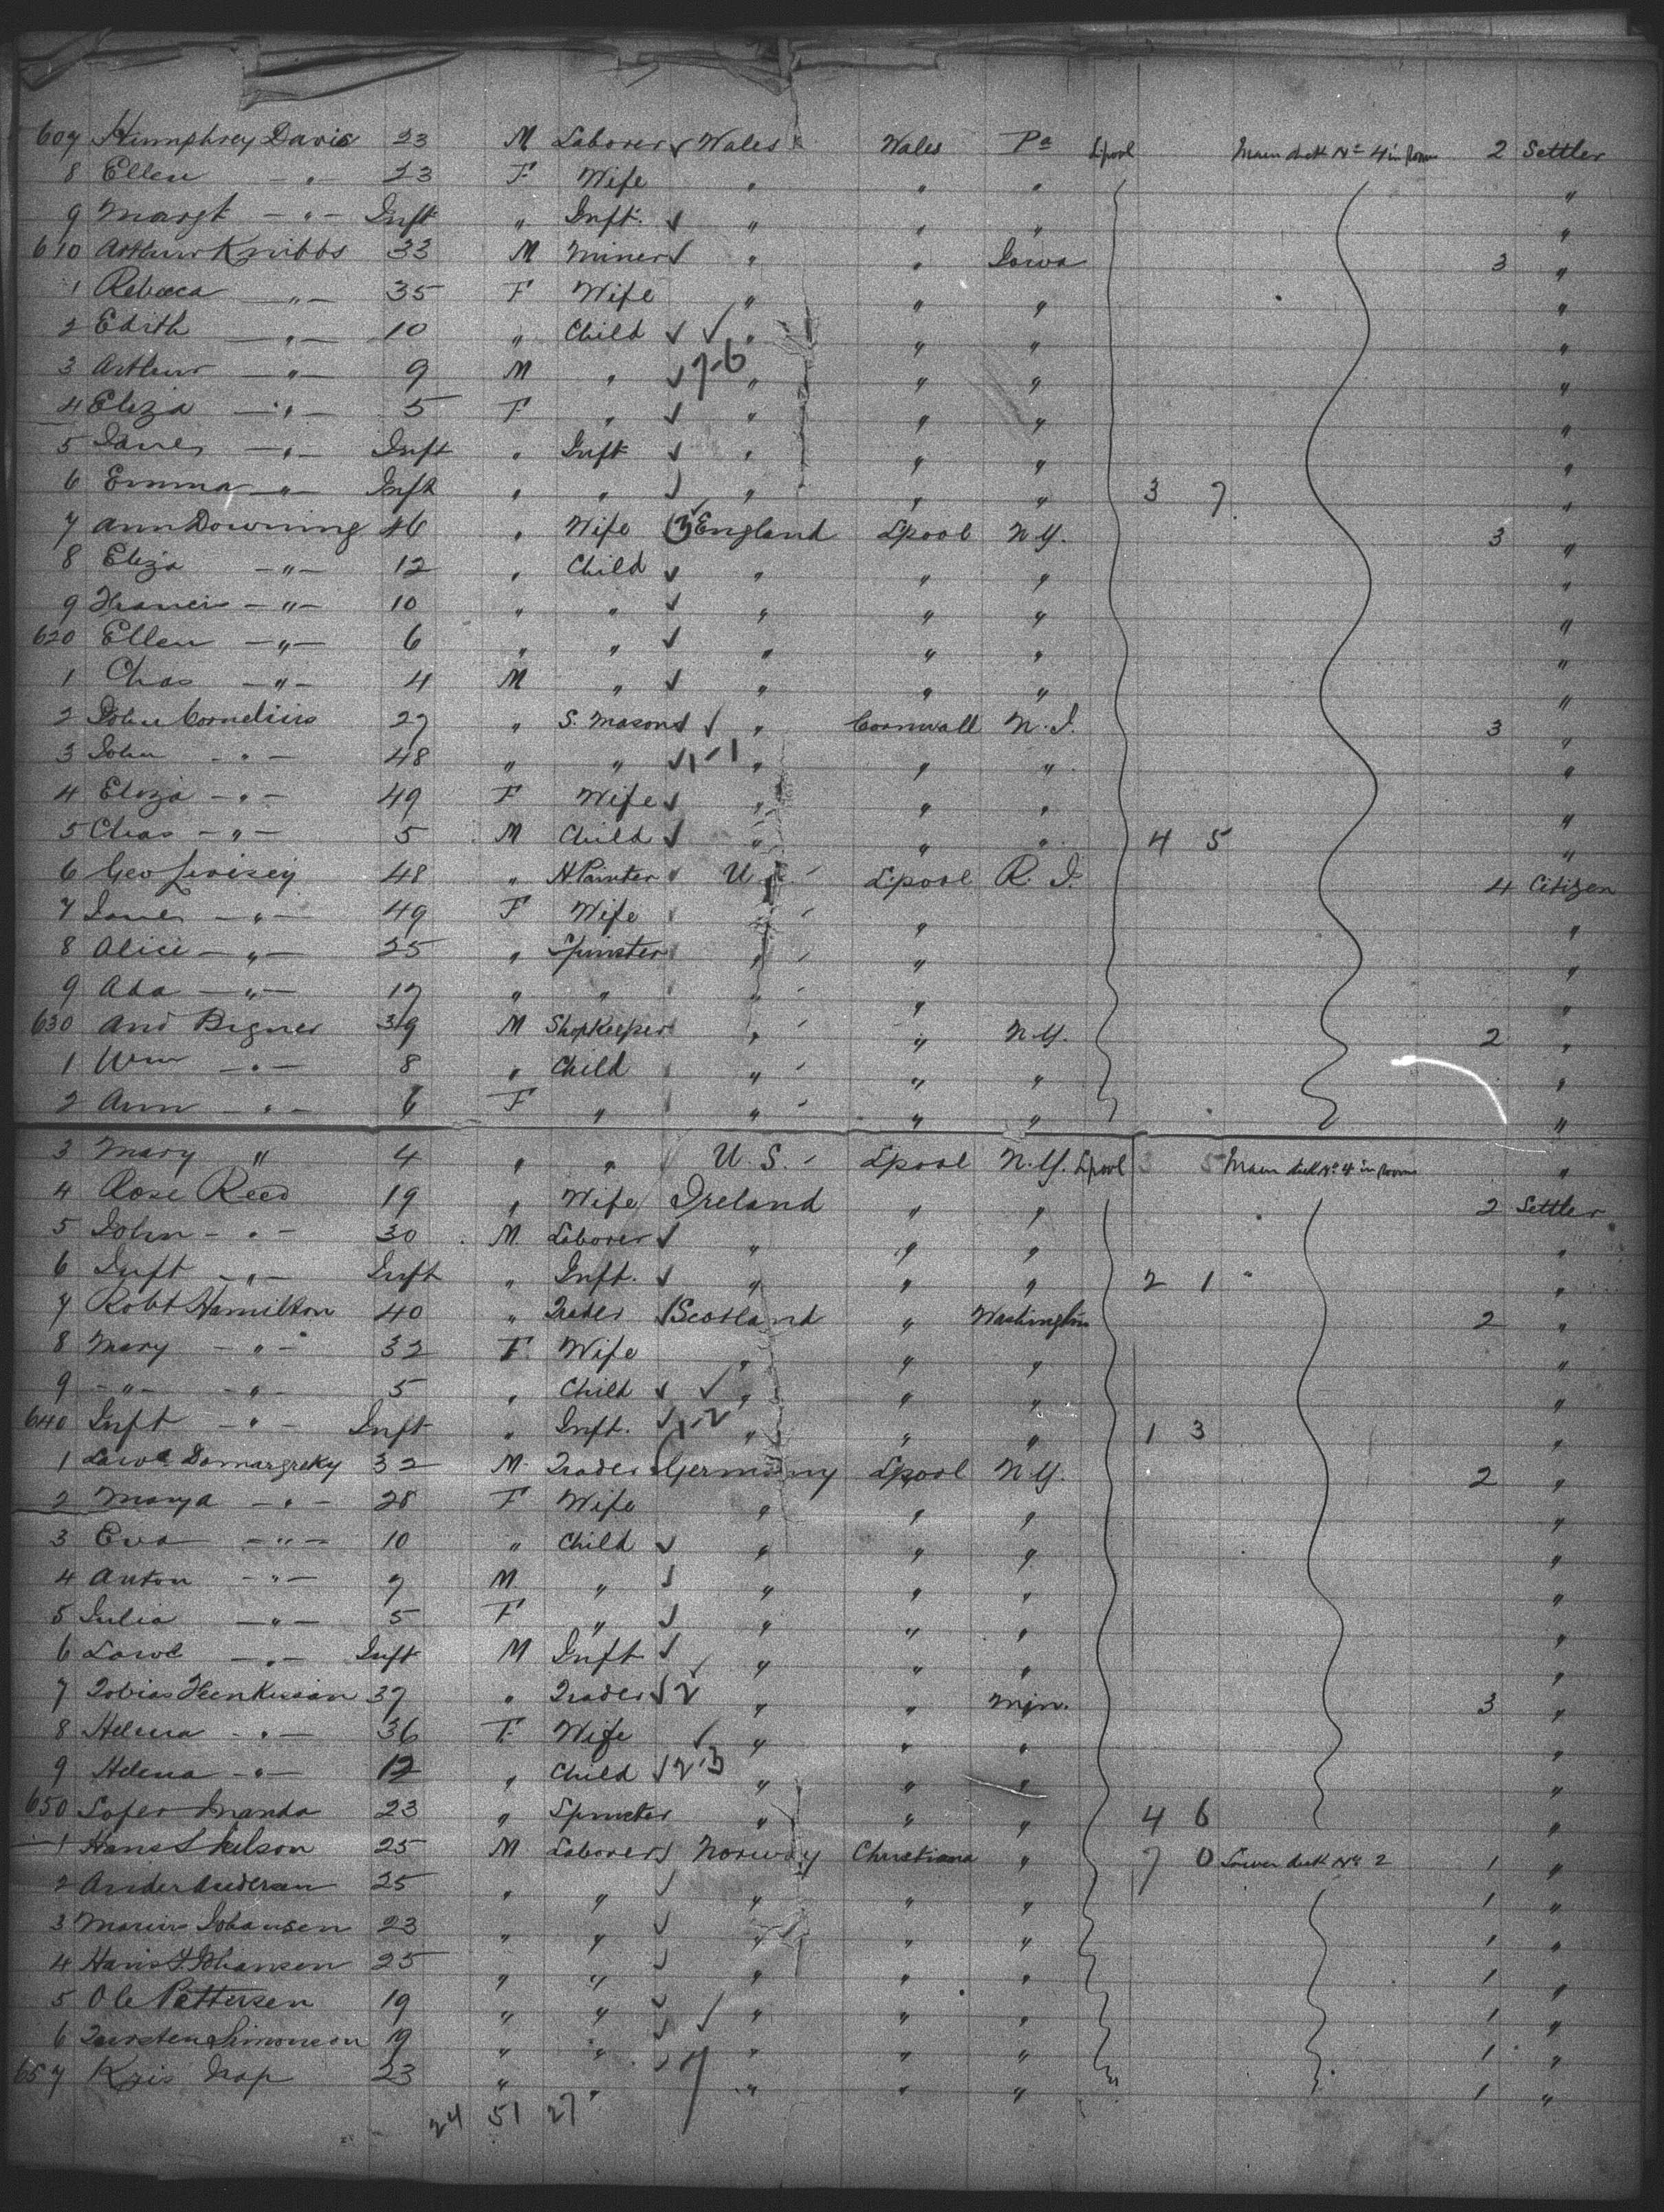 607 Humphrey Davis 23 M Laborer ✓ Wales Wales Pa Lpool Main deck No 4 in Room 2 Settler
8 Ellen — " — 23 F Wife " " " "
9 Margt — " — Inft " Inft. ✓ " " " "
610 Arthur Knibbs 33 M Miner ✓ " " Iowa 3 "
1 Rebecca — " — 35 F Wife " " " "
2 Edith — " — 10 " Child ✓ ✓ " " " "
3 Arthur — " — 9 M " ✓ 7-6 " " " "
4 Eliza — " — 5 F " ✓ " " " "
5 Jane — " — Inft " Inft ✓ " " " "
6 Emma — " — Inft " " ✓ " " " 3 7 "
7 Ann Downing 46 " Wife (3 England Lpool N.Y. 3 "
8 Eliza — " — 12 " Child ✓ " " " "
9 Francis — " — 10 " " ✓ " " " "
620 Ellen — " — 6 " " ✓ " " " "
1 Chas — " — 4 M " ✓ " " " "
2 John Cornelius 27 " S. Mason ✓ ✓ " Cornwall N.J. 3 "
3 John — " — 48 " " ✓ 1-1 " " " "
4 Eliza — " — 49 F Wife ✓ " " " "
5 Chas — " — 5 M Child ✓ " " " 4 5 "
6 Geo Livisey 48 " H Painter U.S. Lpool R.I. 4 Citizen
7 Jane — " — 49 F Wife " " "
8 Alice — " — 25 " Spinster " " "
9 Ada — " — 17 " " " " "
630 And 39 M Shopkeeper " " N.Y. 2 "
1 Wm — " — 8 " Child " " " "
2 Ann — " — 6 F " " " " "
3 Mary " 4 " " U.S. Lpool N.Y. Lpool 5 Main deck No 4 in Room "
4 Rose Reed 19 " Wife Ireland " " 2 Settler
5 John — " — 30 M Laborer ✓ " " " "
6 Inft — " — Inft " Inft. ✓ " " " 2 1 "
7 Robt Hamilton 40 " Trader ✓ Scotland " Washington 2 "
8 Mary — " — 32 F Wife " " " "
9 — " — — " — 5 " Child ✓ ✓ " " " "
640 Inft — " — Inft " Inft. ✓ 1-2 " " " 1 3 "
1 32 M Trader Germany Lpool N.Y. 2 "
2 Marya — " — 28 F Wife " " " "
3 Eva — " — 10 " Child ✓ " " " "
4 Anton — " — 7 M " ✓ " " " "
5 Julia — " — 5 F " ✓ " " " "
6 — " — Inft M Inft ✓ " " " "
7 Tobias 37 " Trader ✓ 2 " " Min. 3 "
8 Helena — " — 36 F Wife ✓ " " " "
9 Helena — " — 12 " Child ✓ 2-3 " " " "
650 23 " Spinster " " " 4 6 "
1 Hans 25 M Laborer ✓ Norway Christiana " 7 0 Lower deck No 2 1 "
2 Ander Andersen 25 " " ✓ " " " 1 "
3 Johansen 23 " " ✓ " " " 1 "
4 Hans Johansen 25 " " ✓ " " " 1 "
5 Ole Pettersen 19 " " ✓ ✓ " " " 1 "
6 Simonson 19 " " ✓ " " " 1 "
657 Kris 23 " " ✓ 7 " " " 1 "
24 51 27